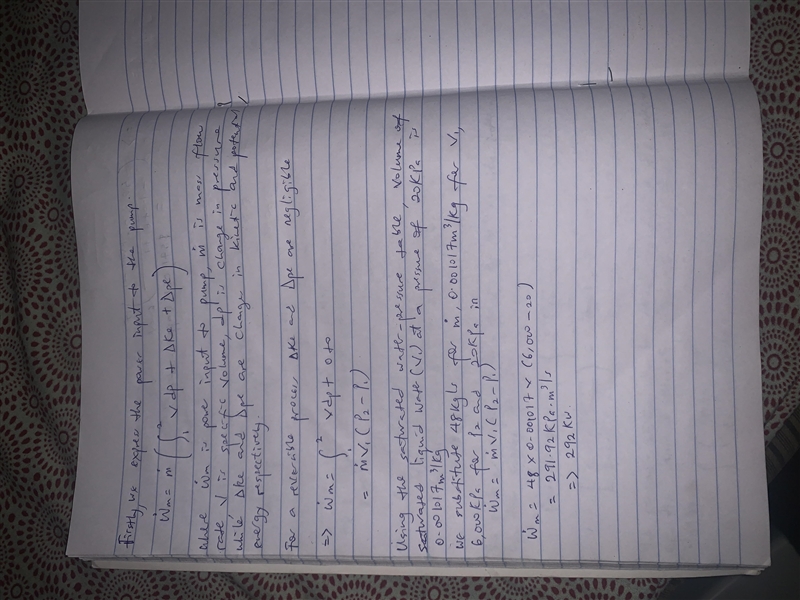 Firstly, we expect the power input to the pump.
Ẇm = ṁ ( ∫₁² v dp + Δke + Δpe )
where Ẇm is power input to pump, ṁ is mass flow
rate v is specific volume, dp is change in pressure
while Δke and Δpe are change in kinetic and potential
energy respectively.
For a reversible process, Δke and Δpe are negligible
=> Ẇm = ∫₁² v dp + 0 + 0
= ṁ v₁ (P₂ - P₁)
Using the saturated water-pressure table, volume of
saturated liquid water (v₁) at a pressure of 20 KPa is
0.001017 m³/kg
we substitute 48 kg/s for ṁ, 0.001017 m³/kg for v₁,
6,000 KPa for P₂ and 20 KPa in
Ẇm = ṁ v₁ (P₂ - P₁)
Ẇm = 48 x 0.001017 x (6,000 - 20)
= 291.92 KPa·m³/s
=> 292 Kw.